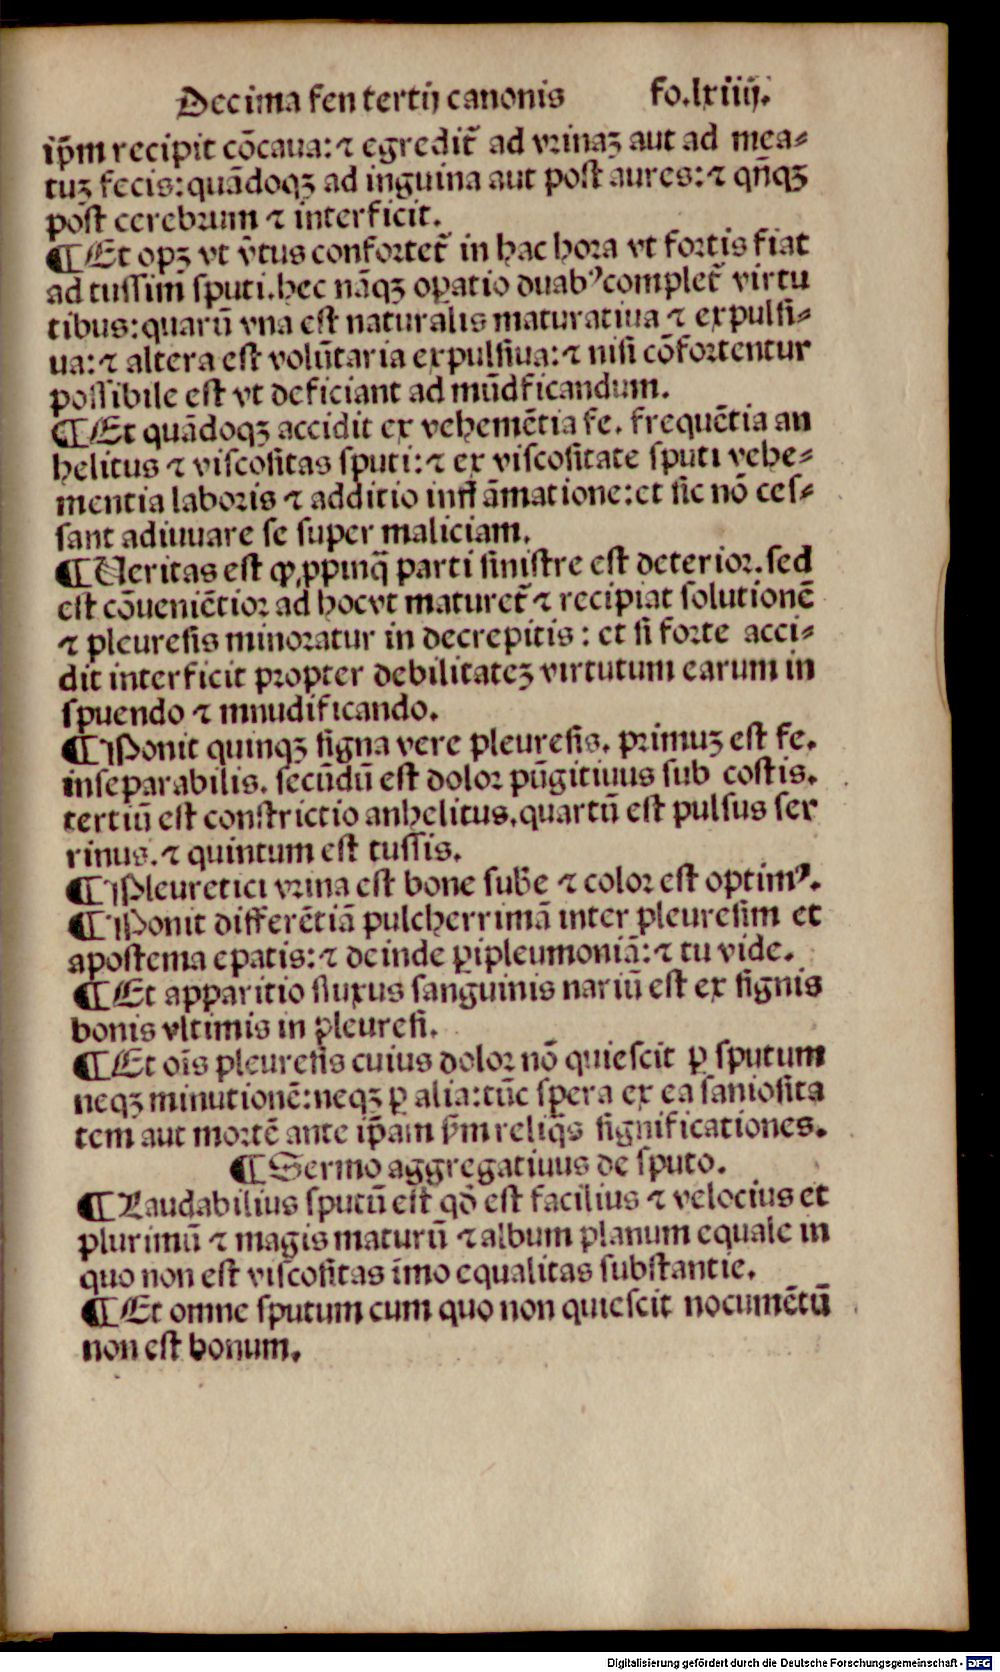 Decima fen tertij canonis fo.lxiiij.
ip̄m recipit cōcaua: ⁊ egredit᷑ ad vrinaꝫ aut ad mea⸗
tuꝫ fecis: quādoqꝫ ad inguina aut post aures: ⁊ qn̄qꝫ
post cerebrum ⁊ interficit.
¶ Et opꝫ vt v̄tus confortet᷑ in hac hora vt fortis fiat
ad tussim sputi. hec nāqꝫ oꝑatio duabꝰ complet᷑ virtu
tibus: quarū vna est naturalis maturatiua ⁊ expulsi⸗
ua: ⁊ altera est volūtaria expulsiua: ⁊ nisi cōfortentur
possibile est vt deficiant ad mūdficandum.
¶ Et quādoqꝫ accidit ex vehemētia fe. frequētia an
helitus ⁊ viscositas sputi: ⁊ ex viscositate sputi vehe⸗
mentia laboris ⁊ additio infl āmatione: et sic nō ces⸗
sant adiuuare se super maliciam.
¶ Ueritas est ꝙ ꝓpinq̄ parti sinistre est deterior. sed
est cōueniētior ad hoc vt maturet᷑ ⁊ recipiat solutionē
⁊ pleuresis minoratur in decrepitis: et si forte acci⸗
dit interficit propter debilitateꝫ virtutum earum in
spuendo ⁊ mnudificando.
¶ Ponit quinqꝫ signa vere pleuresis. primuꝫ est fe.
inseparabilis. secūdū est dolor pūgitiuus sub costis.
tertiū est constrictio anhelitus. quartū est pulsus ser
rinus. ⁊ quintum est tussis.
¶ Pleuretici vrina est bone sub̄e ⁊ color est optimꝰ.
¶ Ponit differētiā pulcherrimā inter pleuresim et
apostema epatis: ⁊ deinde ꝑipleumoniā: ⁊ tu vide.
¶ Et apparitio fluxus sanguinis nariū est ex signis
bonis vltimis in pleuresi.
¶ Et oīs pleuresis cuius dolor nō quiescit ꝑ sputum
neqꝫ minutionē: neqꝫ ꝑ alia: tūc spera ex ea saniosita
tem aut mortē ante ip̄am ẜm reliq̄s significationes.
¶ Sermo aggregatiuus de sputo.
¶ Laudabilius sputū est qd̄ est facilius ⁊ velocius et
plurimū ⁊ magis maturū ⁊ album planum equale in
quo non est viscositas īmo equalitas substantie.
¶ Et omne sputum cum quo non quiescit nocumētū
non est bonum.
Digitalisierung gefördert durch die Deutsche Forschungsgemeinschaft - DFG